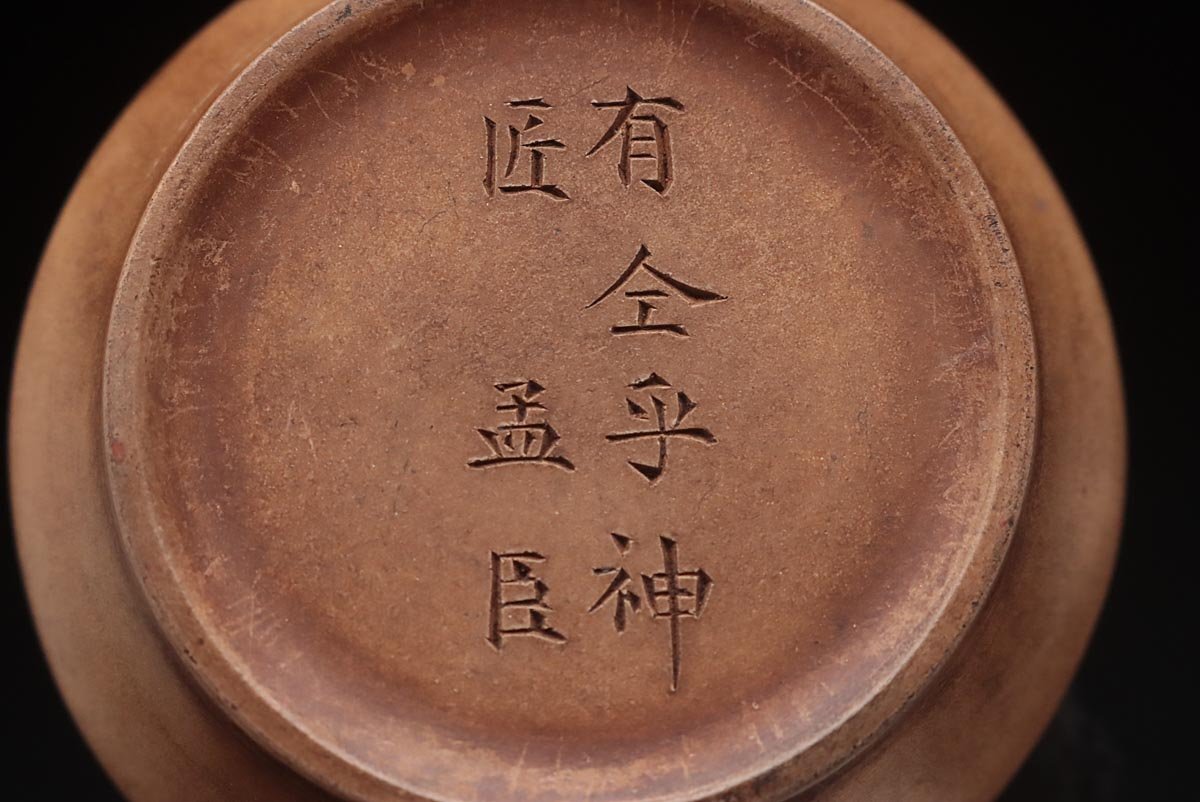 有仝乎神
匠孟臣